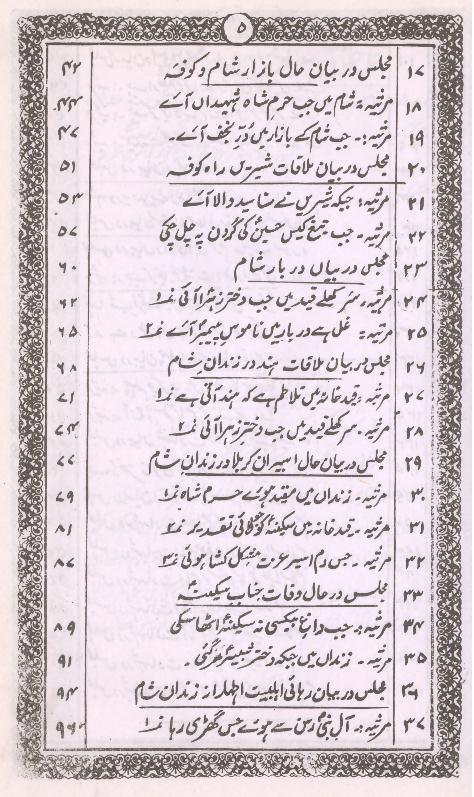 ۵
۱۷ مجلس در بیان حال بازار شام و کوفہ ۴۲
۱۸ مرثیہ:۔ شام میں جب حرم شاہ شہیداں آئے ۴۴
۱۹ مرثیہ:۔ جب شام کے بازار میں دُرِّ نجف آئے۔ ۴۷
۲۰ مجلس در بیان ملاقات شیریں راہ کوفہ ۵۱
۲۱ مرثیہ: جبکہ شیریں نے سنا سید والا آئے ۵۳
۲۲ مرثیہ۔ جب تیغ کیں حسینؑ کی گردن پہ چل چکی ۵۷
۲۳ مجلس در بیاں دربار شام ۶۰
۲۴ مرثیہ: سر کھلے قید میں جب دختر زہراؑ آئی نمبر۱ ۶۲
۲۵ مرثیہ: غل ہے دربار میں ناموس پیمبرؐ آئے نمبر۲ ۶۵
۲۶ مجلس در بیان ملاقات ہند در زندان شام ۶۸
۲۷ مرثیہ: قید خانہ میں تلاطم ہے کہ ہند آتی ہے نمبر۱ ۷۱
۲۸ مرثیہ۔ سر کھلے قید میں جب دختر زہرا آئی نمبر۲ ۷۴
۲۹ مجلس در بیان حال اسیران کربلا در زندان شام ۷۷
۳۰ مرثیہ۔ زنداں میں مقید ہوئے حرم شاہ نمبر۱ ۷۹
۳۱ مرثیہ۔ قید خانہ میں سکینہؑ کو لائی تقدیر نمبر۲ ۸۱
۳۲ مرثیہ۔ جس دم اسیر عترت مشکل کشا ہوئی نمبر۳ ۸۷
۳۳ مجلس در حال وفات جناب سکینہؑ
۳۴ مرثیہ:۔ جب داغ بیکسی نہ سکینہؑ اٹھا سکی ۸۹
۳۵ مرثیہ۔ زنداں میں جبکہ دختر شبیرؑ مر گئی۔ ۹۱
۳۶ مجلس در بیان رہائی اہلبیت اطہار از زندان شام ۹۴
۳۷ مرثیہ:۔ آل نبیؐ رسن سے ہوئے جس گھڑی رہا نمبر۱ ۹۶